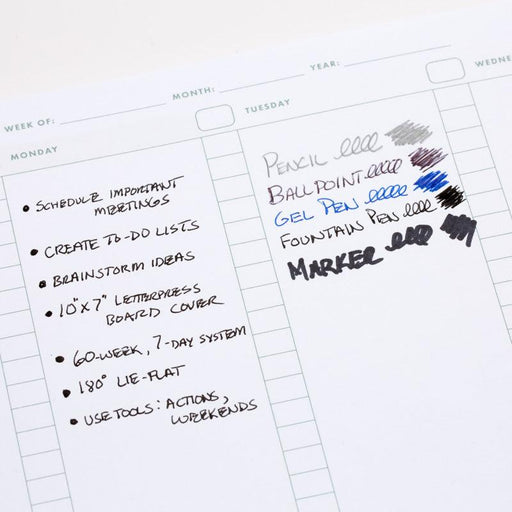 WEEK OF:
MONTH:
YEAR:
MONDAY
TUESDAY
WEDNE
• SCHEDULE IMPORTANT
MEETINGS
• CREATE TO-DO LISTS
• BRAINSTORM IDEAS
• 10"X7" LETTERPRESS
BOARD COVER
• 60-WEEK, 7-DAY SYSTEM
• 180° LIE-FLAT
• USE TOOLS: ACTIONS,
WEEKENDS
PENCIL
BALLPOINT
GEL PEN
FOUNTAIN PEN
MARKER